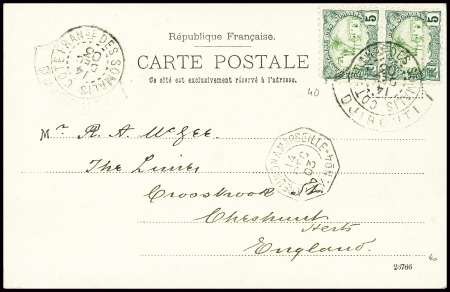 République Française.
CARTE POSTALE
Ce côté est exclusivement réservé à l'adresse.
5 5
COTE FRANÇSE DES SOMALIS
14
DJIBOUTI
40
Mr R. A. McGee.
The Limes
Crossbrook
Cheshunt
Herts
England.
23766
40